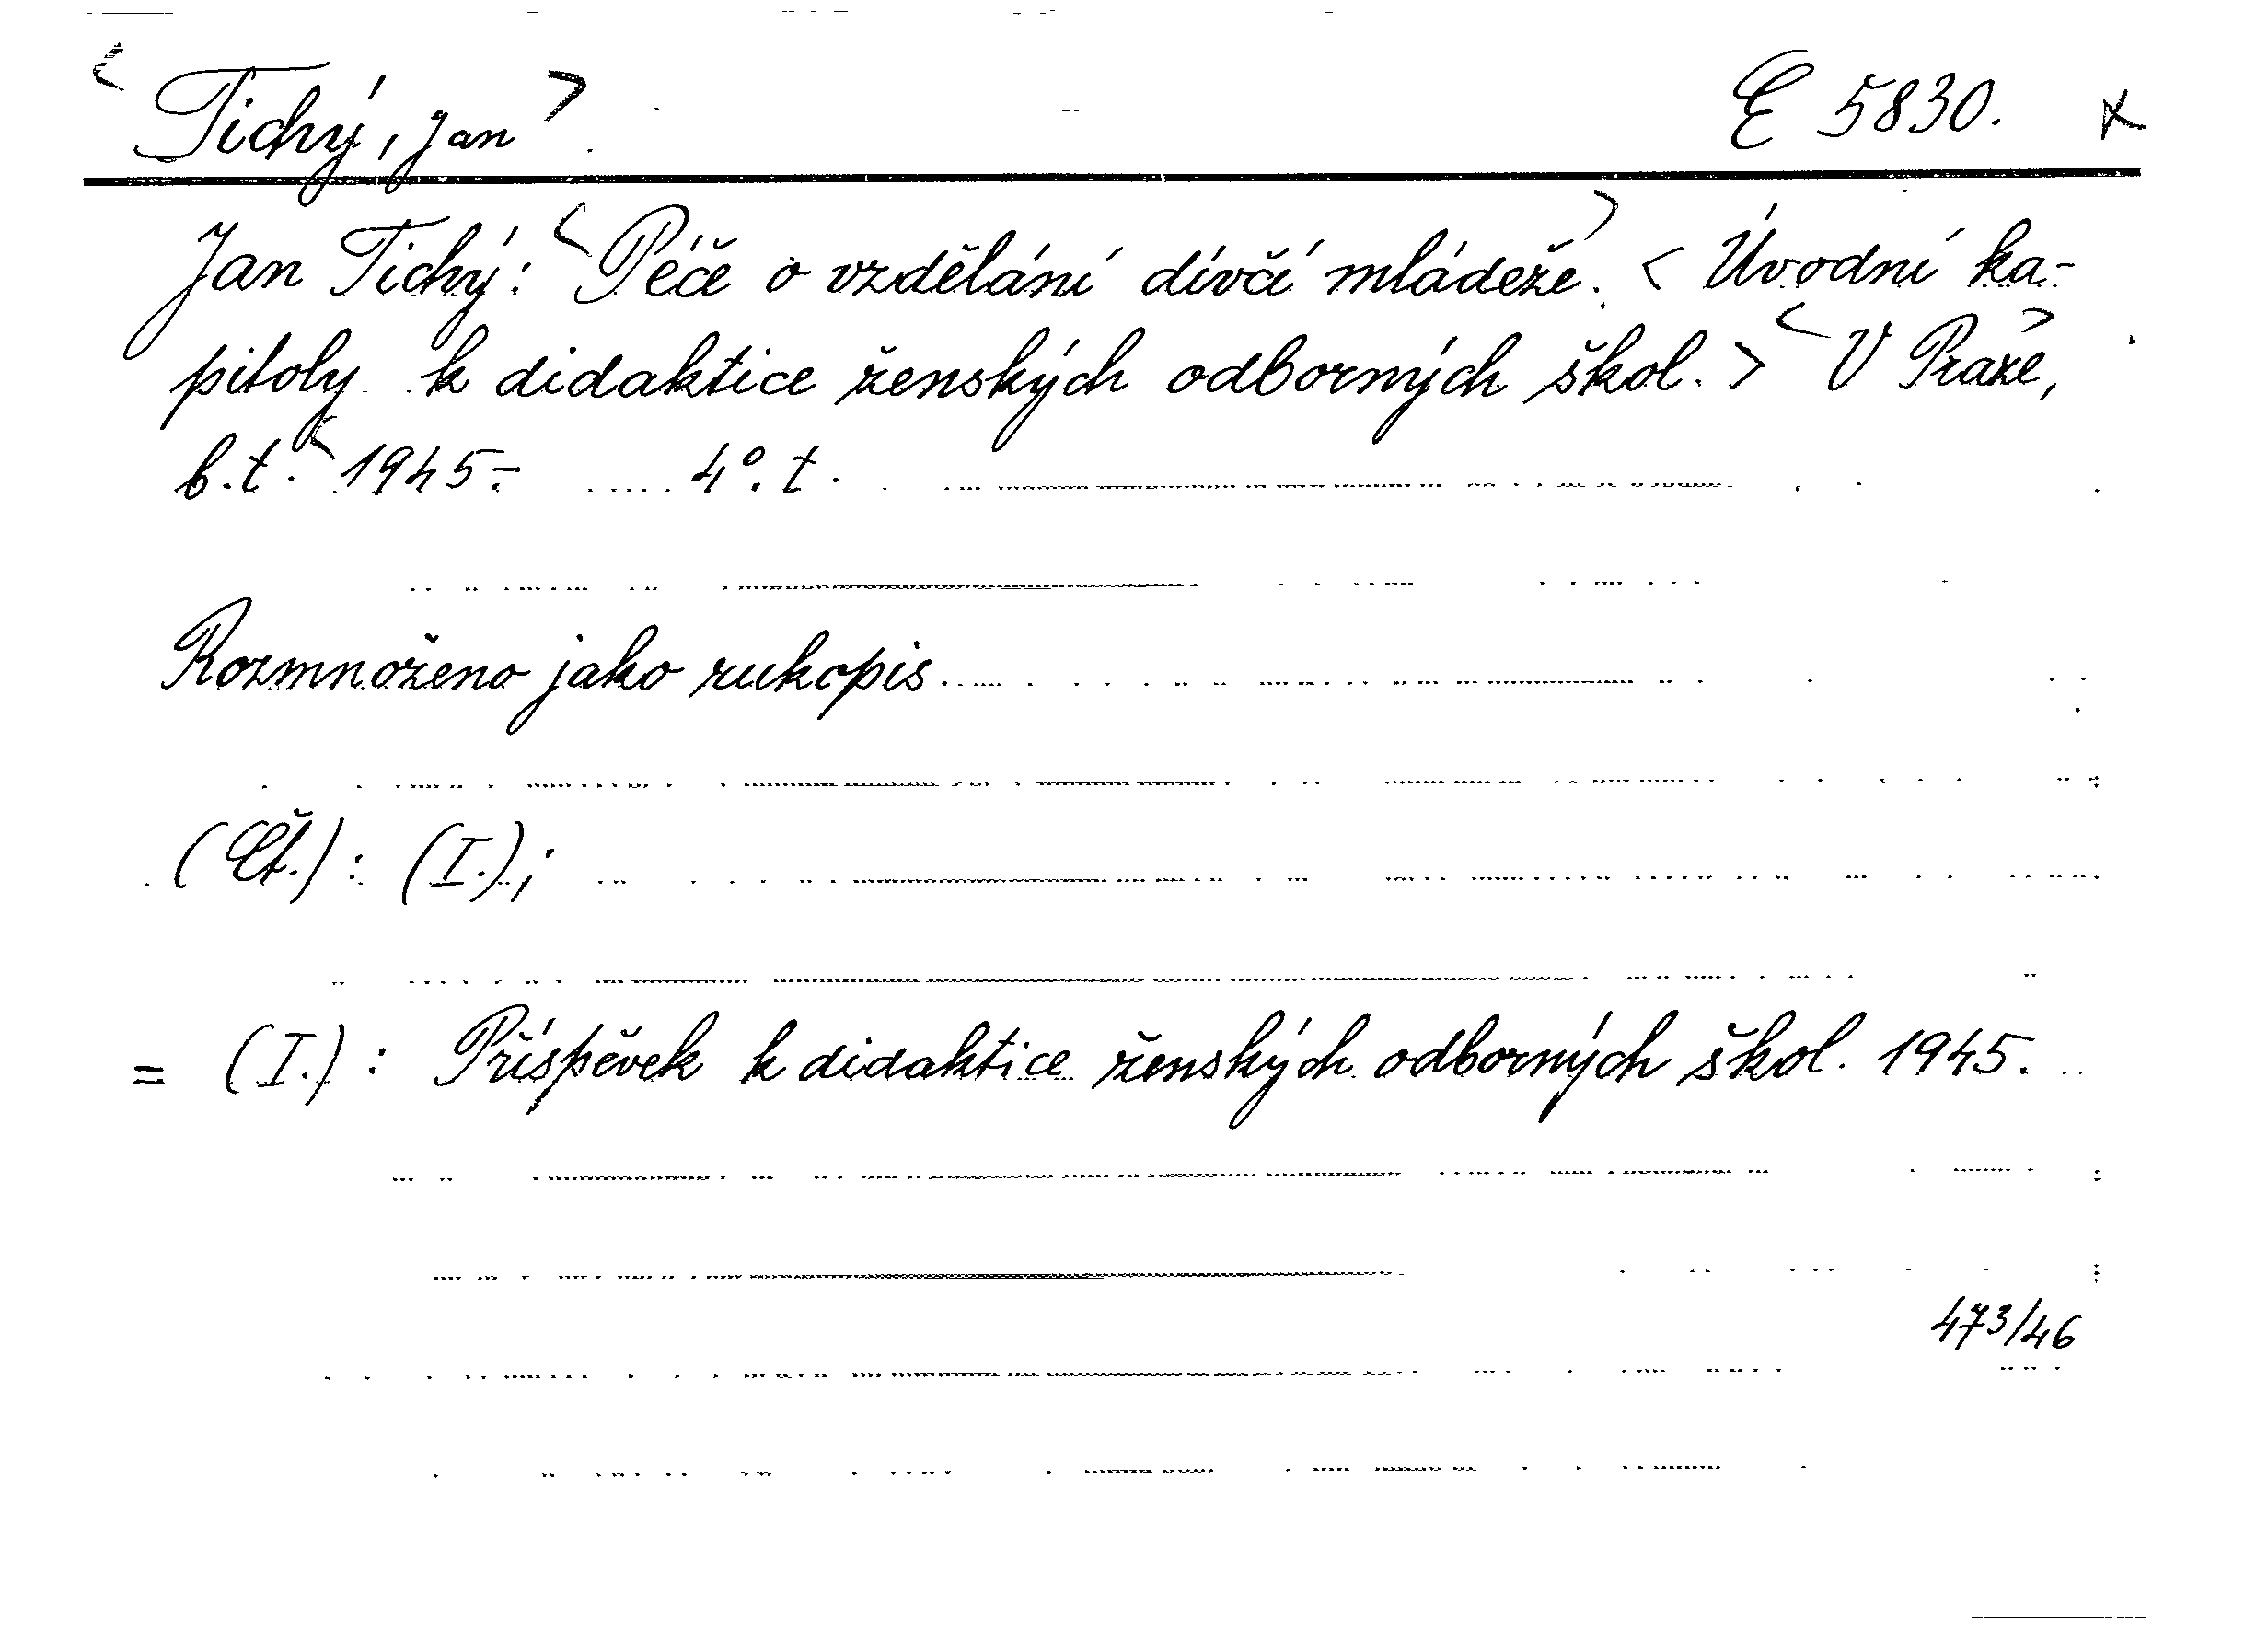 < Tichý, Jan > E 5830. x
Jan Tichý: < Péče o vzdělání dívčí mládeže. > < Úvodní ka-
pitoly k didaktice ženských odborných škol. > < V Praze, >
b.t. < 1945.- 4°. t.
Rozmnoženo jako rukopis.
(Čt.): (I.);
= (I.): Příspěvek k didaktice ženských odborných škol. 1945.
473/46